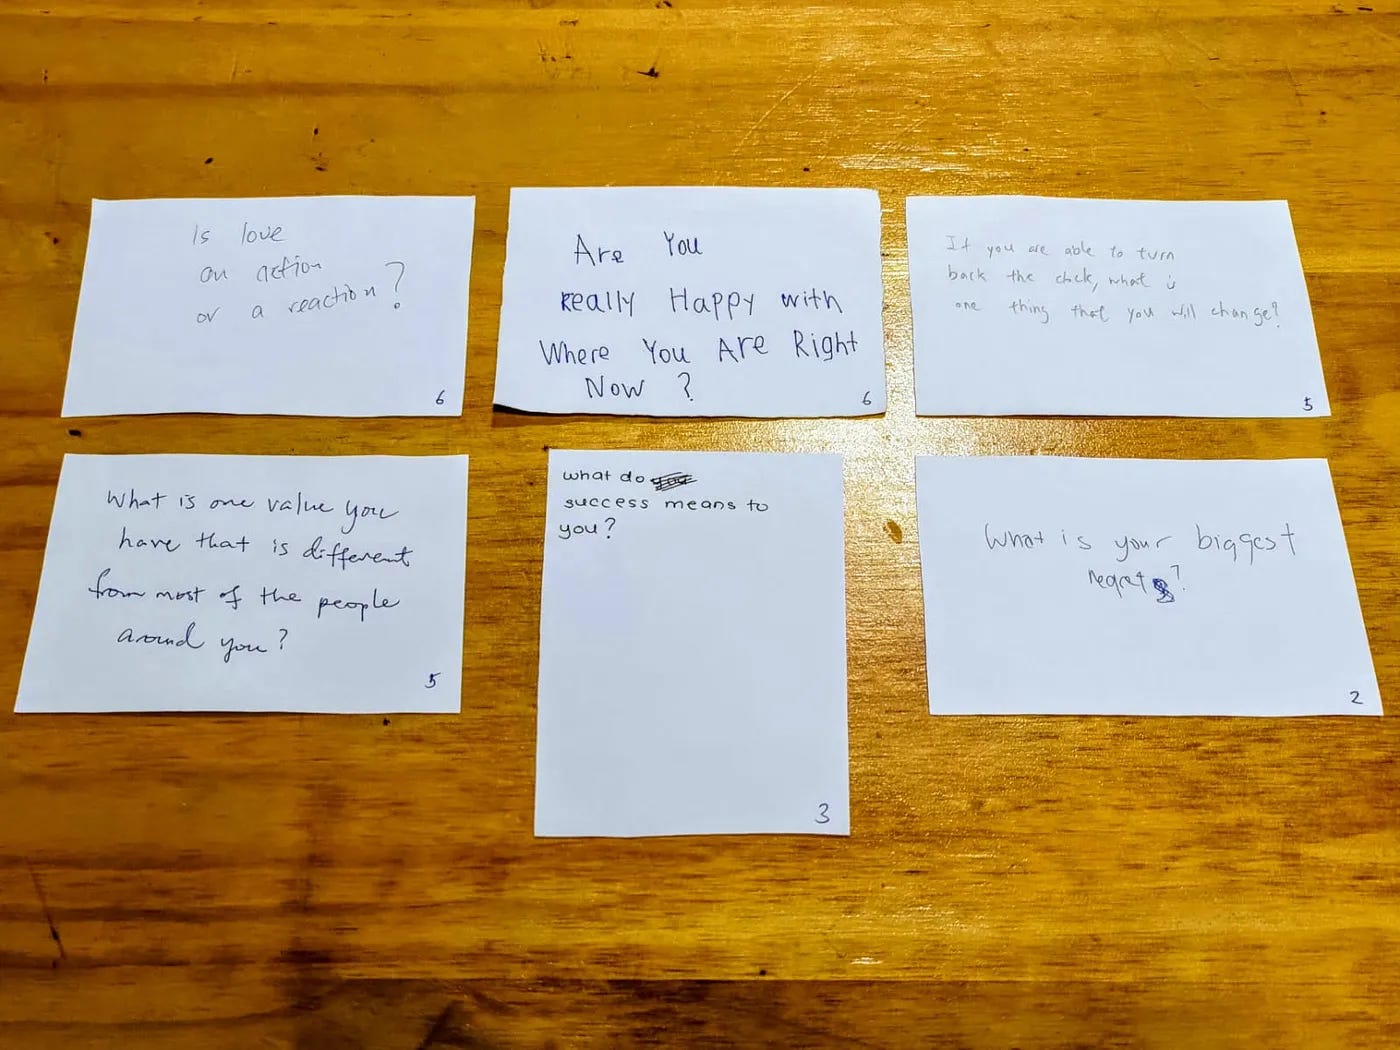 Is love
an action
or a reaction?
6
Are You
Really Happy with
Where You Are Right
Now ?
6
If you are able to turn
back the clock, what is
one thing that you will change?
5
What is one value you
have that is different
from most of the people
around you?
5
what do
success means to
you?
3
What is your biggest
regret?
2